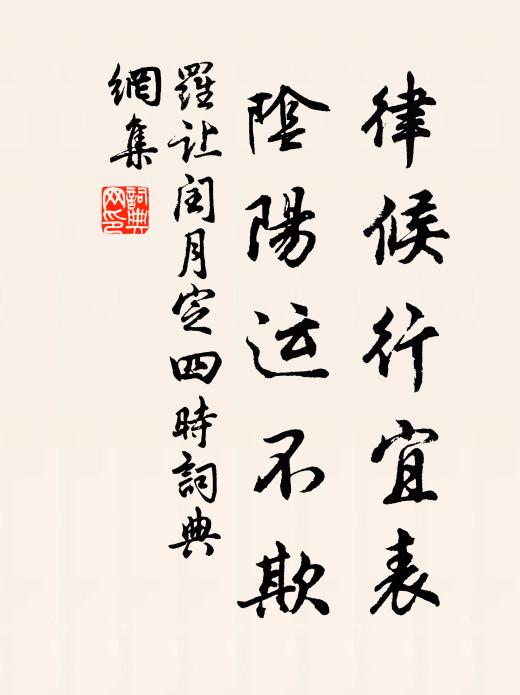 律候行宜表
陰陽运不欺
羅让闰月定四時詞典
網集
詞典
网印